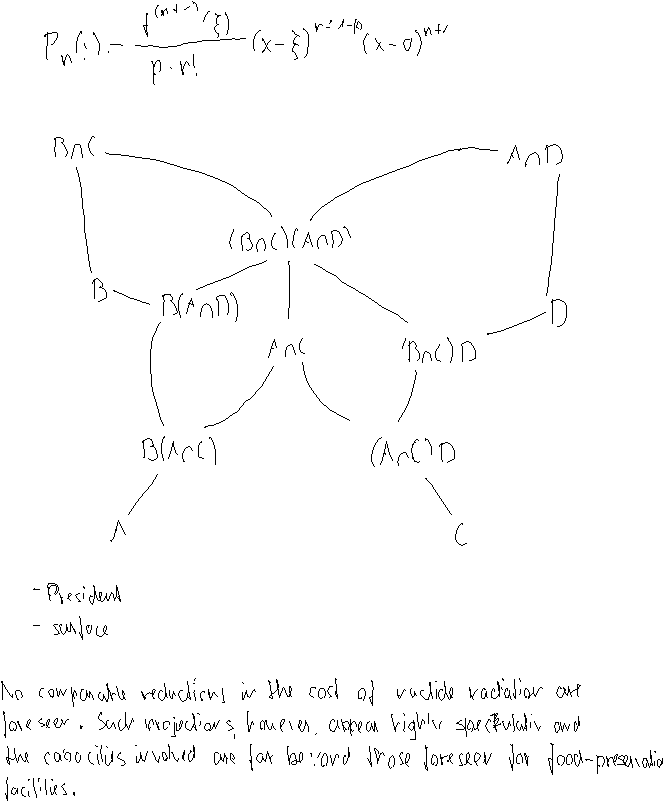 P_n(!) = \frac{f^{(n+1)}(ξ)}{p · n!} (x-ξ)^{n+1-p} (x-0)^{n+1}
B∩C
A∩D
(B∩C)(A∩D)
B
B(A∩D)
D
A∩C
(B∩C)D
B(A∩C)
(A∩C)D
A
C
- President
- surface
No comparable reductions in the cost of nuclide radiation are
foreseen. Such projections, however, appear highly speculativ and
the capacities involved are far beyond those foreseen for food-preservation
facilities.